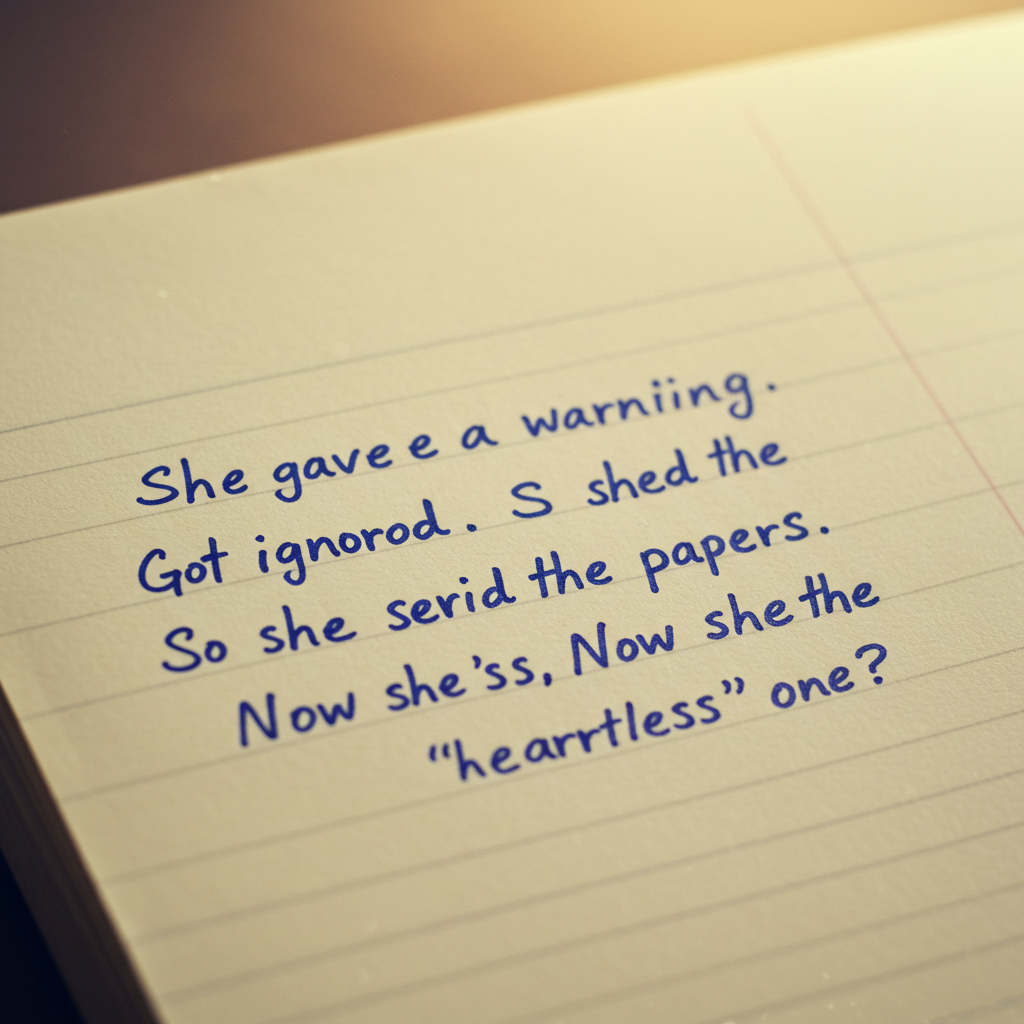 She gavee e a warniing.
Got ignorod. S shed the
So she serid the papers.
Now she'ss, Now she the
“hearrtless” one?